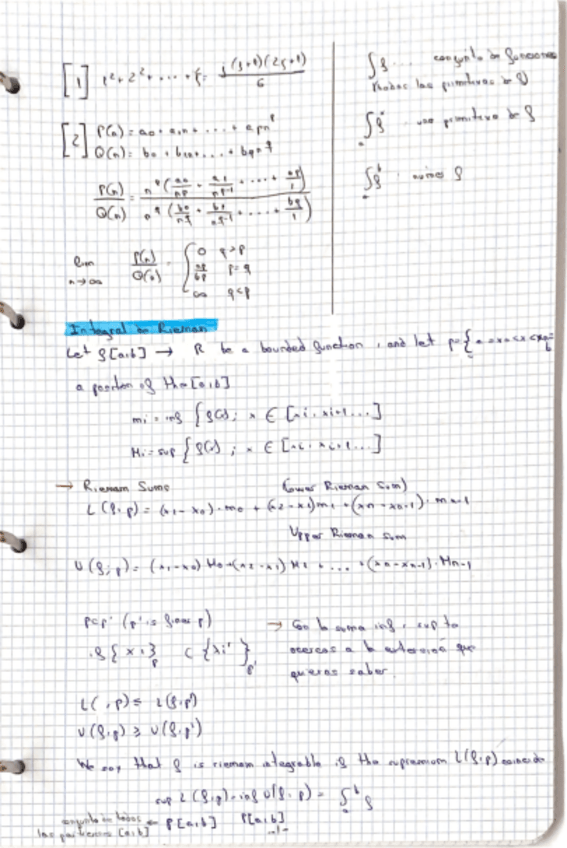 [1] 1²+2²+ ... + j² = j(j+1)(2j+1) / 6
[2] P(n) = a0 + a1n + ..... + apn^p
Q(n) = b0 + b1n + .... + bqn^q
P(n)/Q(n) = n^p (a0/n^p + a1/n^p-1 + ..... + ap/1) / n^q (b0/n^q + b1/n^q-1 + ..... + bq/1)
lim n→∞ P(n)/Q(n) = { 0 q>p
ap/bp p=q
∞ q<p
∫f ... conjunto de funciones
(todas las primitivas de f)
∫f .. una primitiva de f
∫f
Integral on Rieman
Let f[a,b] → R be a bounded function, and let p={a=x0<x<xn=b
a of the [a,b]
mi = inf {f(x); x ∈ [xi, xi+1...]
Mi = sup {f(x); x ∈ [xi, xi+1...]
→ Riemam Sums (Lower Rieman Sum)
L(f,p) = (x1-x0)·m0 + (x2-x1)m1 + (xn-xn-1)·mn-1
Upper Rieman sum
U(f,p) = (x1-x0)M0+(x2-x1)M1 + ... + (xn-xn-1)·Mn-1
p⊂p' (p' is finer p)
if {xi}p ⊂ {xi'}p'
→ Con la suma inf, sup te
acercas a la que
quieras saber.
L( ,p) ≤ L(f,p')
U(f,p) ≥ U(f,p')
We say that f is riemam integrable if the supremum L(f,p) coincide
sup L(f,p)=inf U(f,p) = ∫ab f
conjunto de todas
las particiones [a,b] ← P[a,b] P[a,b]
-1-